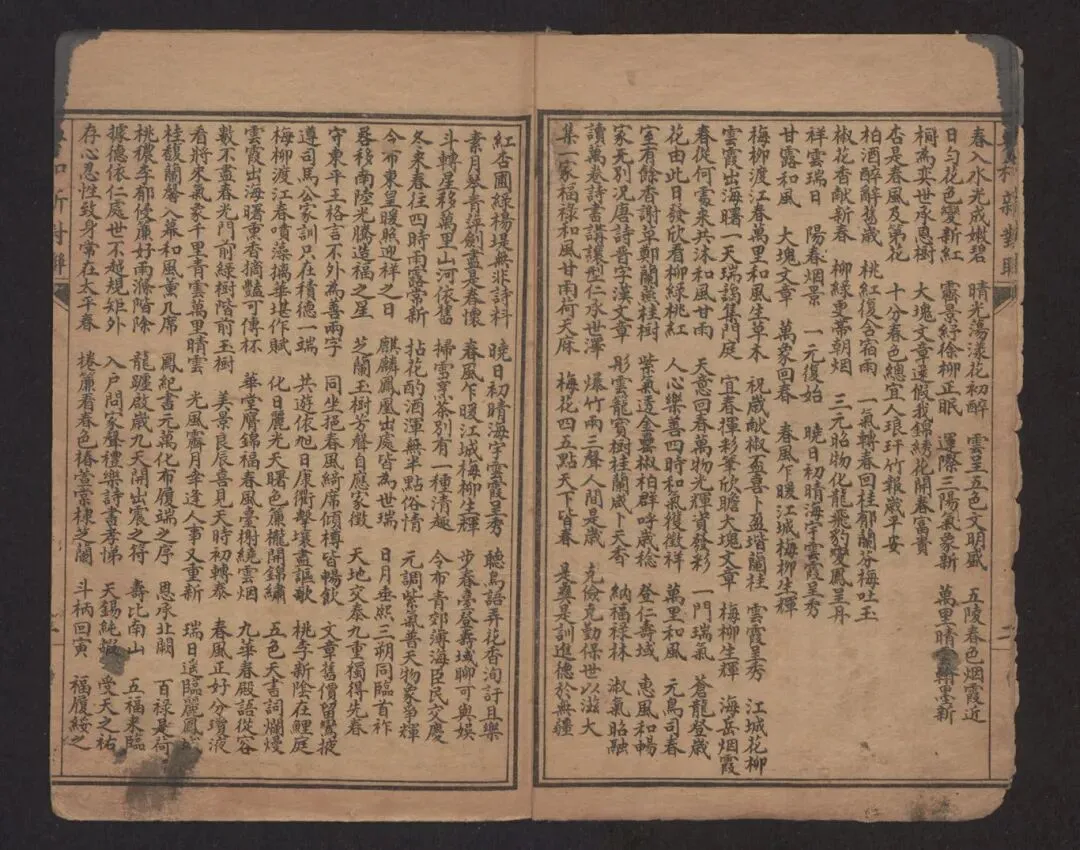 春入水光成嫩碧　晴光蕩漾花初醉　雲呈五色文明盛　五陵春色烟霞近
日勻花色變新紅　靄景紆徐柳正眠　運際三陽氣象新　萬里晴　翰墨新
桐為奕世承恩樹　大塊文章連假我　錦綉花開春富貴
杏是春風及第花　十分春色總宜人　琅玕竹報歲平安
柏酒醉辭舊歲　桃紅復含宿雨　一氣轉春回桂郁蘭芬梅吐玉
椒花香献新春　柳綠更帶朝烟　三元昭物化龍飛豹變鳳呈丹
祥雲瑞日　陽春烟景　一元復始　曉日初晴海宇雲霞呈秀
甘露和風　大塊文章　萬象回春　春風乍暖江城梅柳生輝
梅柳渡江春萬里和風生草木　祝歲献椒盃喜卜盈堦蘭桂　雲霞呈秀　江城花柳
雲霞出海曙一天瑞靄集門庭　宜春揮彩筆欣瞻大塊文章　梅柳生輝　海岳烟霞
春從何處來共沐和風甘雨　天意回春萬物光輝資發彩　一門瑞氣　蒼龍登歲
花由此日發欣看柳綠桃紅　人心樂善四時和氣復徵祥　萬里和風　元鳥司春
室有餘香謝草鄭蘭燕桂樹　紫氣透金罍椒柏群呼歲稔　登仁壽域　惠風和暢
家无別況唐詩晉字漢文章　彤雲籠寶樹桂蘭咸卜天香　納福祿林　淑氣昭融
讀萬卷詩書講讓型仁承世澤　爆竹兩三聲人間是歲　克儉克勤保世以滋大
集一家福祿和風甘雨荷天庥　梅花四五點天下皆春　是彝是訓進德於無疆
紅杏圃綠楊堤無非詩料　曉日初晴海宇雲霞呈秀　聽鳥語弄花香洵訏且樂
素月琴青萍劍盡是春懷　春風乍暖江城梅柳生輝　步春臺登壽域聊可與娛
斗轉星移萬里山河依舊　掃雪烹茶別有一種清趣　今布青郊薄海臣民交慶
冬來春往四時雨露常新　拈花酌酒渾無半點俗情　元調紫氣普天物象爭輝
今布東皇暖照迎祥之日　麒麟鳳凰出處皆為世瑞　日月垂熙三朔同臨首祚
晷移南陸光騰造福之星　芝蘭玉樹芳聲自應家徵　天地交泰九重獨得先春
守東平王格言不外為善兩字　同坐挹春風綺席傾樽皆暢飲　文章舊價留鸞掖
遵司馬公家訓只在積德一端　共遊依旭日康衢擊壤盡謳歌　桃李新陰在鯉庭
梅柳渡江春噴藻摛華堪作賦　化日麗光天曙色簾櫳開錦繡　五色天書詞爛熳
雲霞出海曙熏香摘豔可傳杯　華堂膺錦福春風臺榭繞雲烟　九華春殿語從容
數不盡春光門前綠樹階前玉樹　美景良辰喜見天時初轉泰　春風正好分瓊液
看將來氣象千里青雲萬里晴雲　光風霽月幸逢人事又重新　瑞日遙臨麗鳳
桂馥蘭馨入幕和風薰几席　鳳紀書元萬化布履端之序　恩承北闕　百祿是荷
桃穠李郁侵簾好雨滌階除　龍躔啟歲九天開出震之符　壽比南山　五福來臨
據德依仁處世不越規矩外　入戶問家聲禮樂詩書孝悌　天錫純嘏　受天之祐
存心忍性致身常在太平春　捲簾看春色椿萱棠棣芝蘭　斗柄回寅　福履綏之